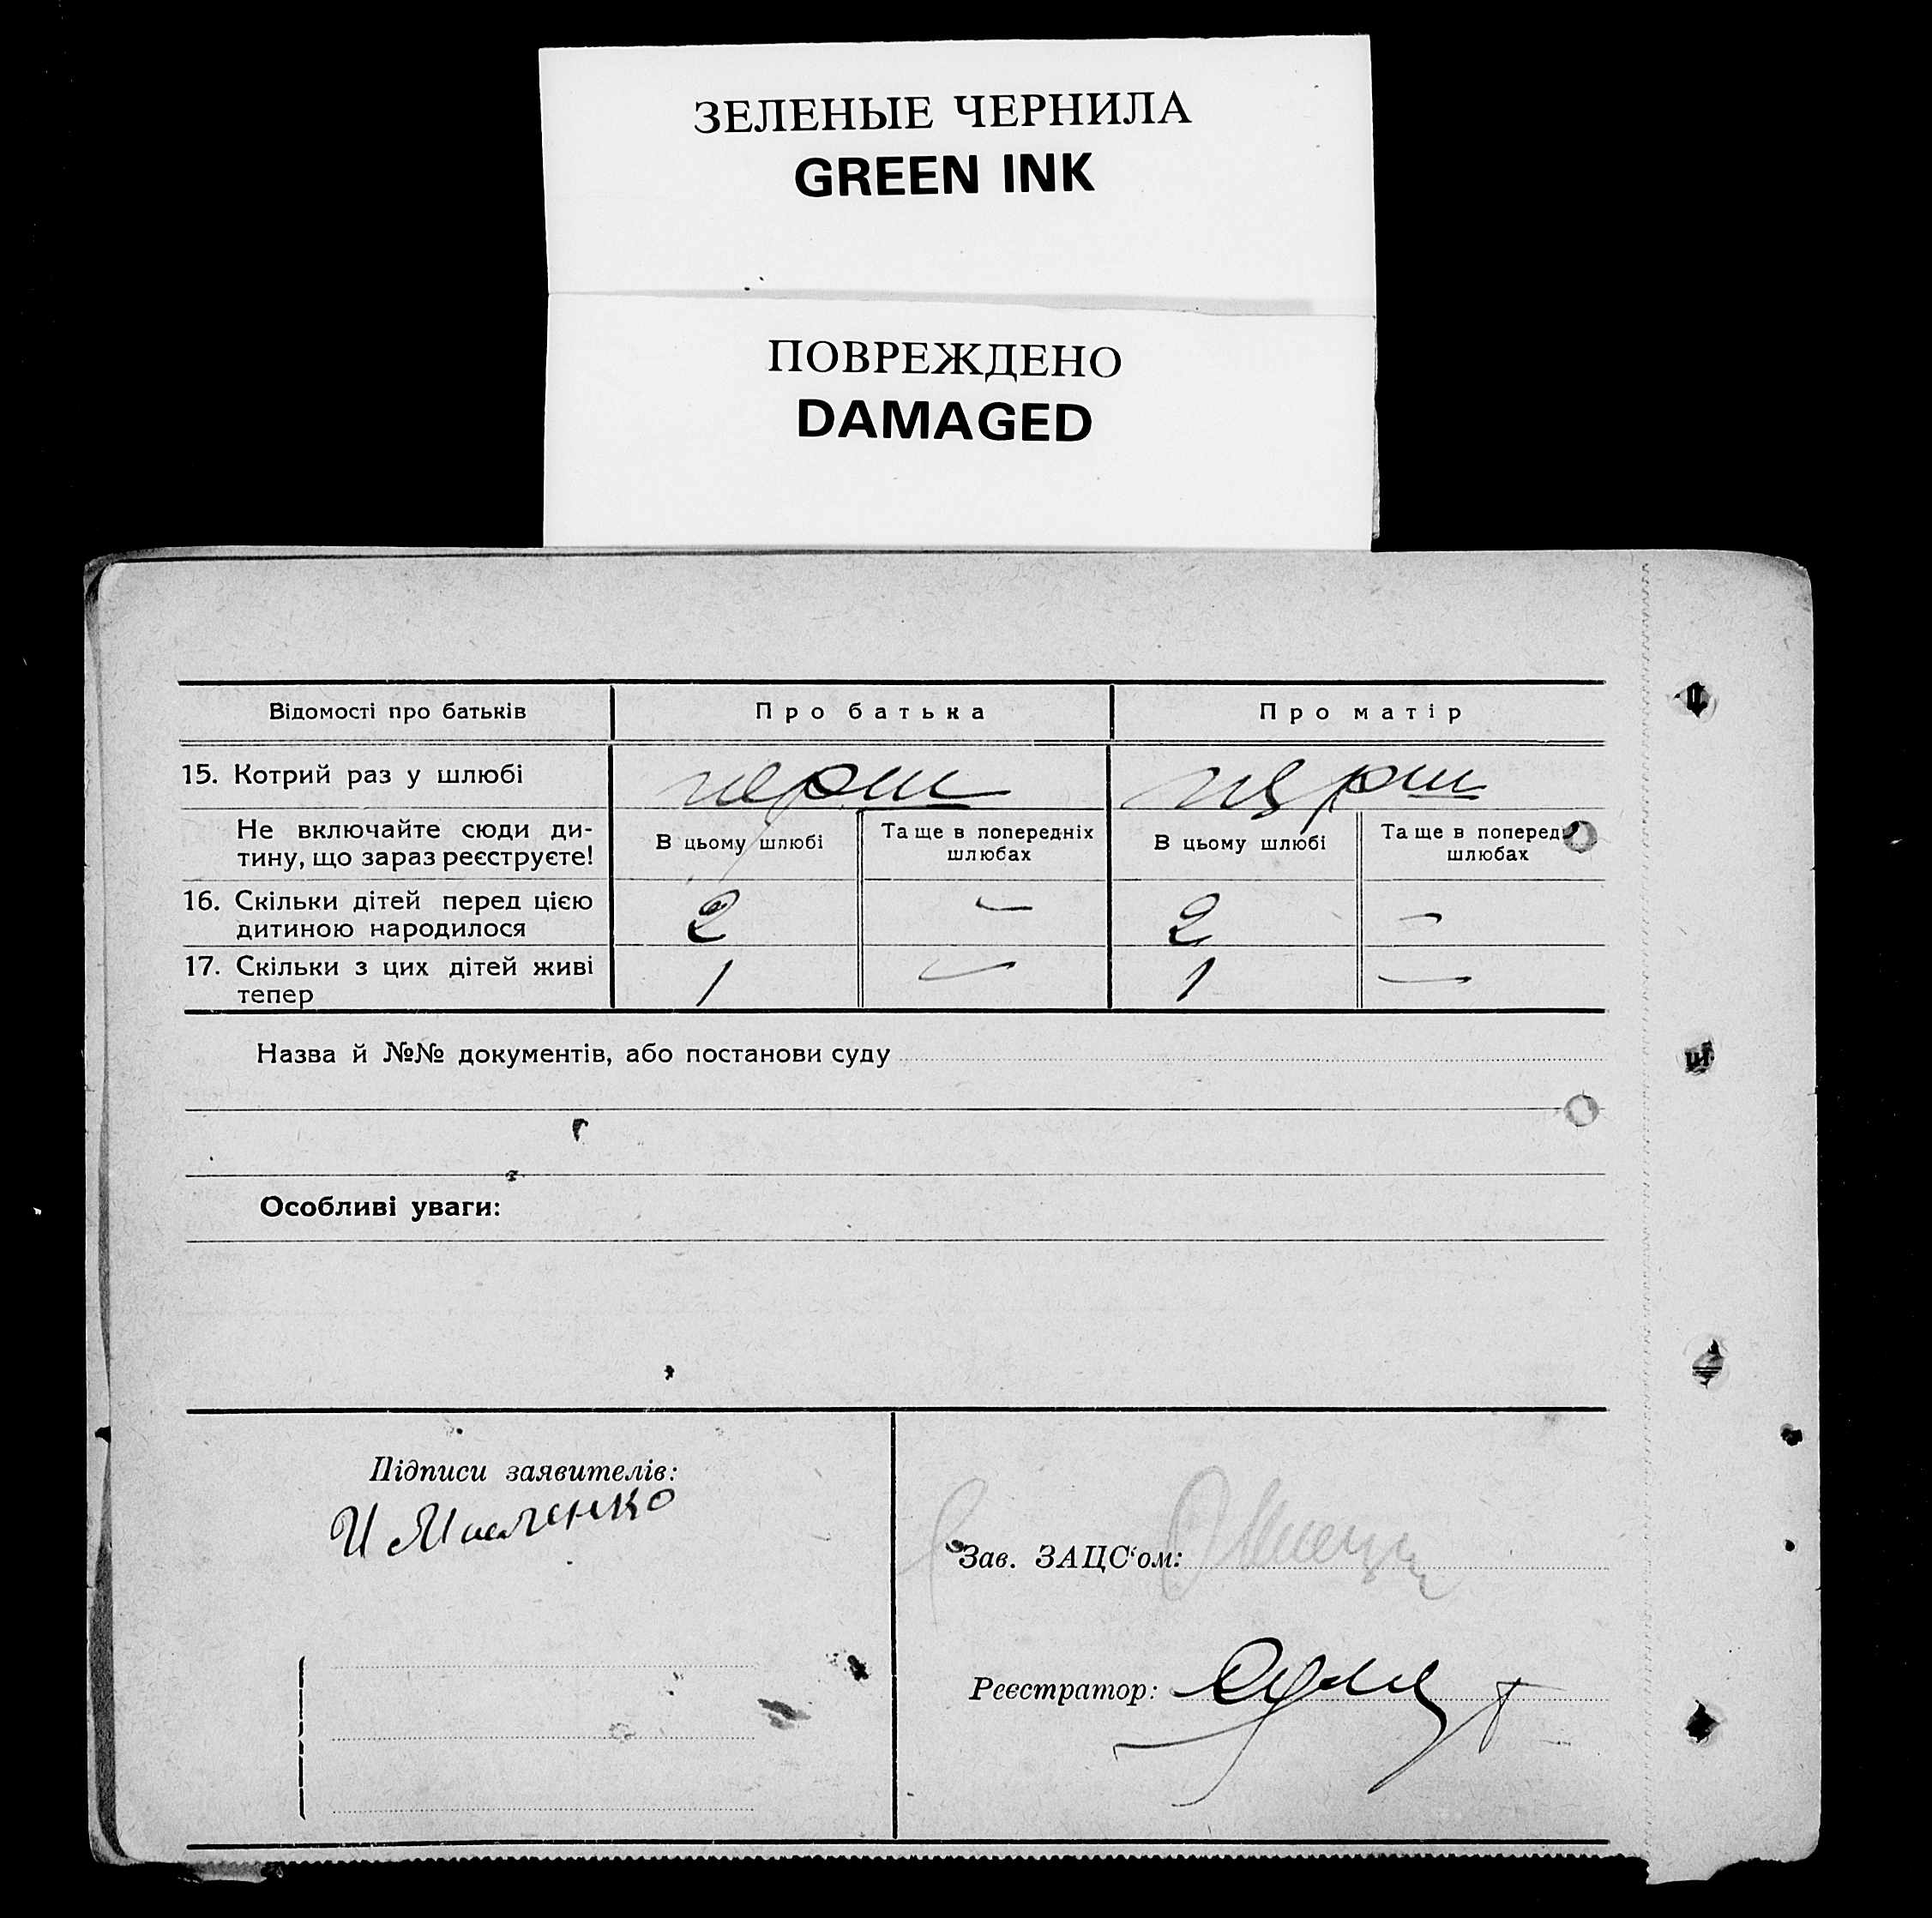 ЗЕЛЕНЫЕ ЧЕРНИЛА
GREEN INK
ПОВРЕЖДЕНО
DAMAGED
Відомості про батьків Про батька Про матір
15. Котрий раз у шлюбі перш перш
Не включайте сюди ди-
тину, що зараз реєструєте!
В цьому шлюбі
Та ще в попередніх
шлюбах
В цьому шлюбі
Та ще в поперед
шлюбах
16. Скільки дітей перед цією
дитиною народилося
2 — 2 —
17. Скільки з цих дітей живі
тепер
1 — 1 —
Назва й №№ документів, або постанови суду
Особливі уваги:
Підписи заявителів:
И
Зав. ЗАЦС'ом:
Реєстратор: